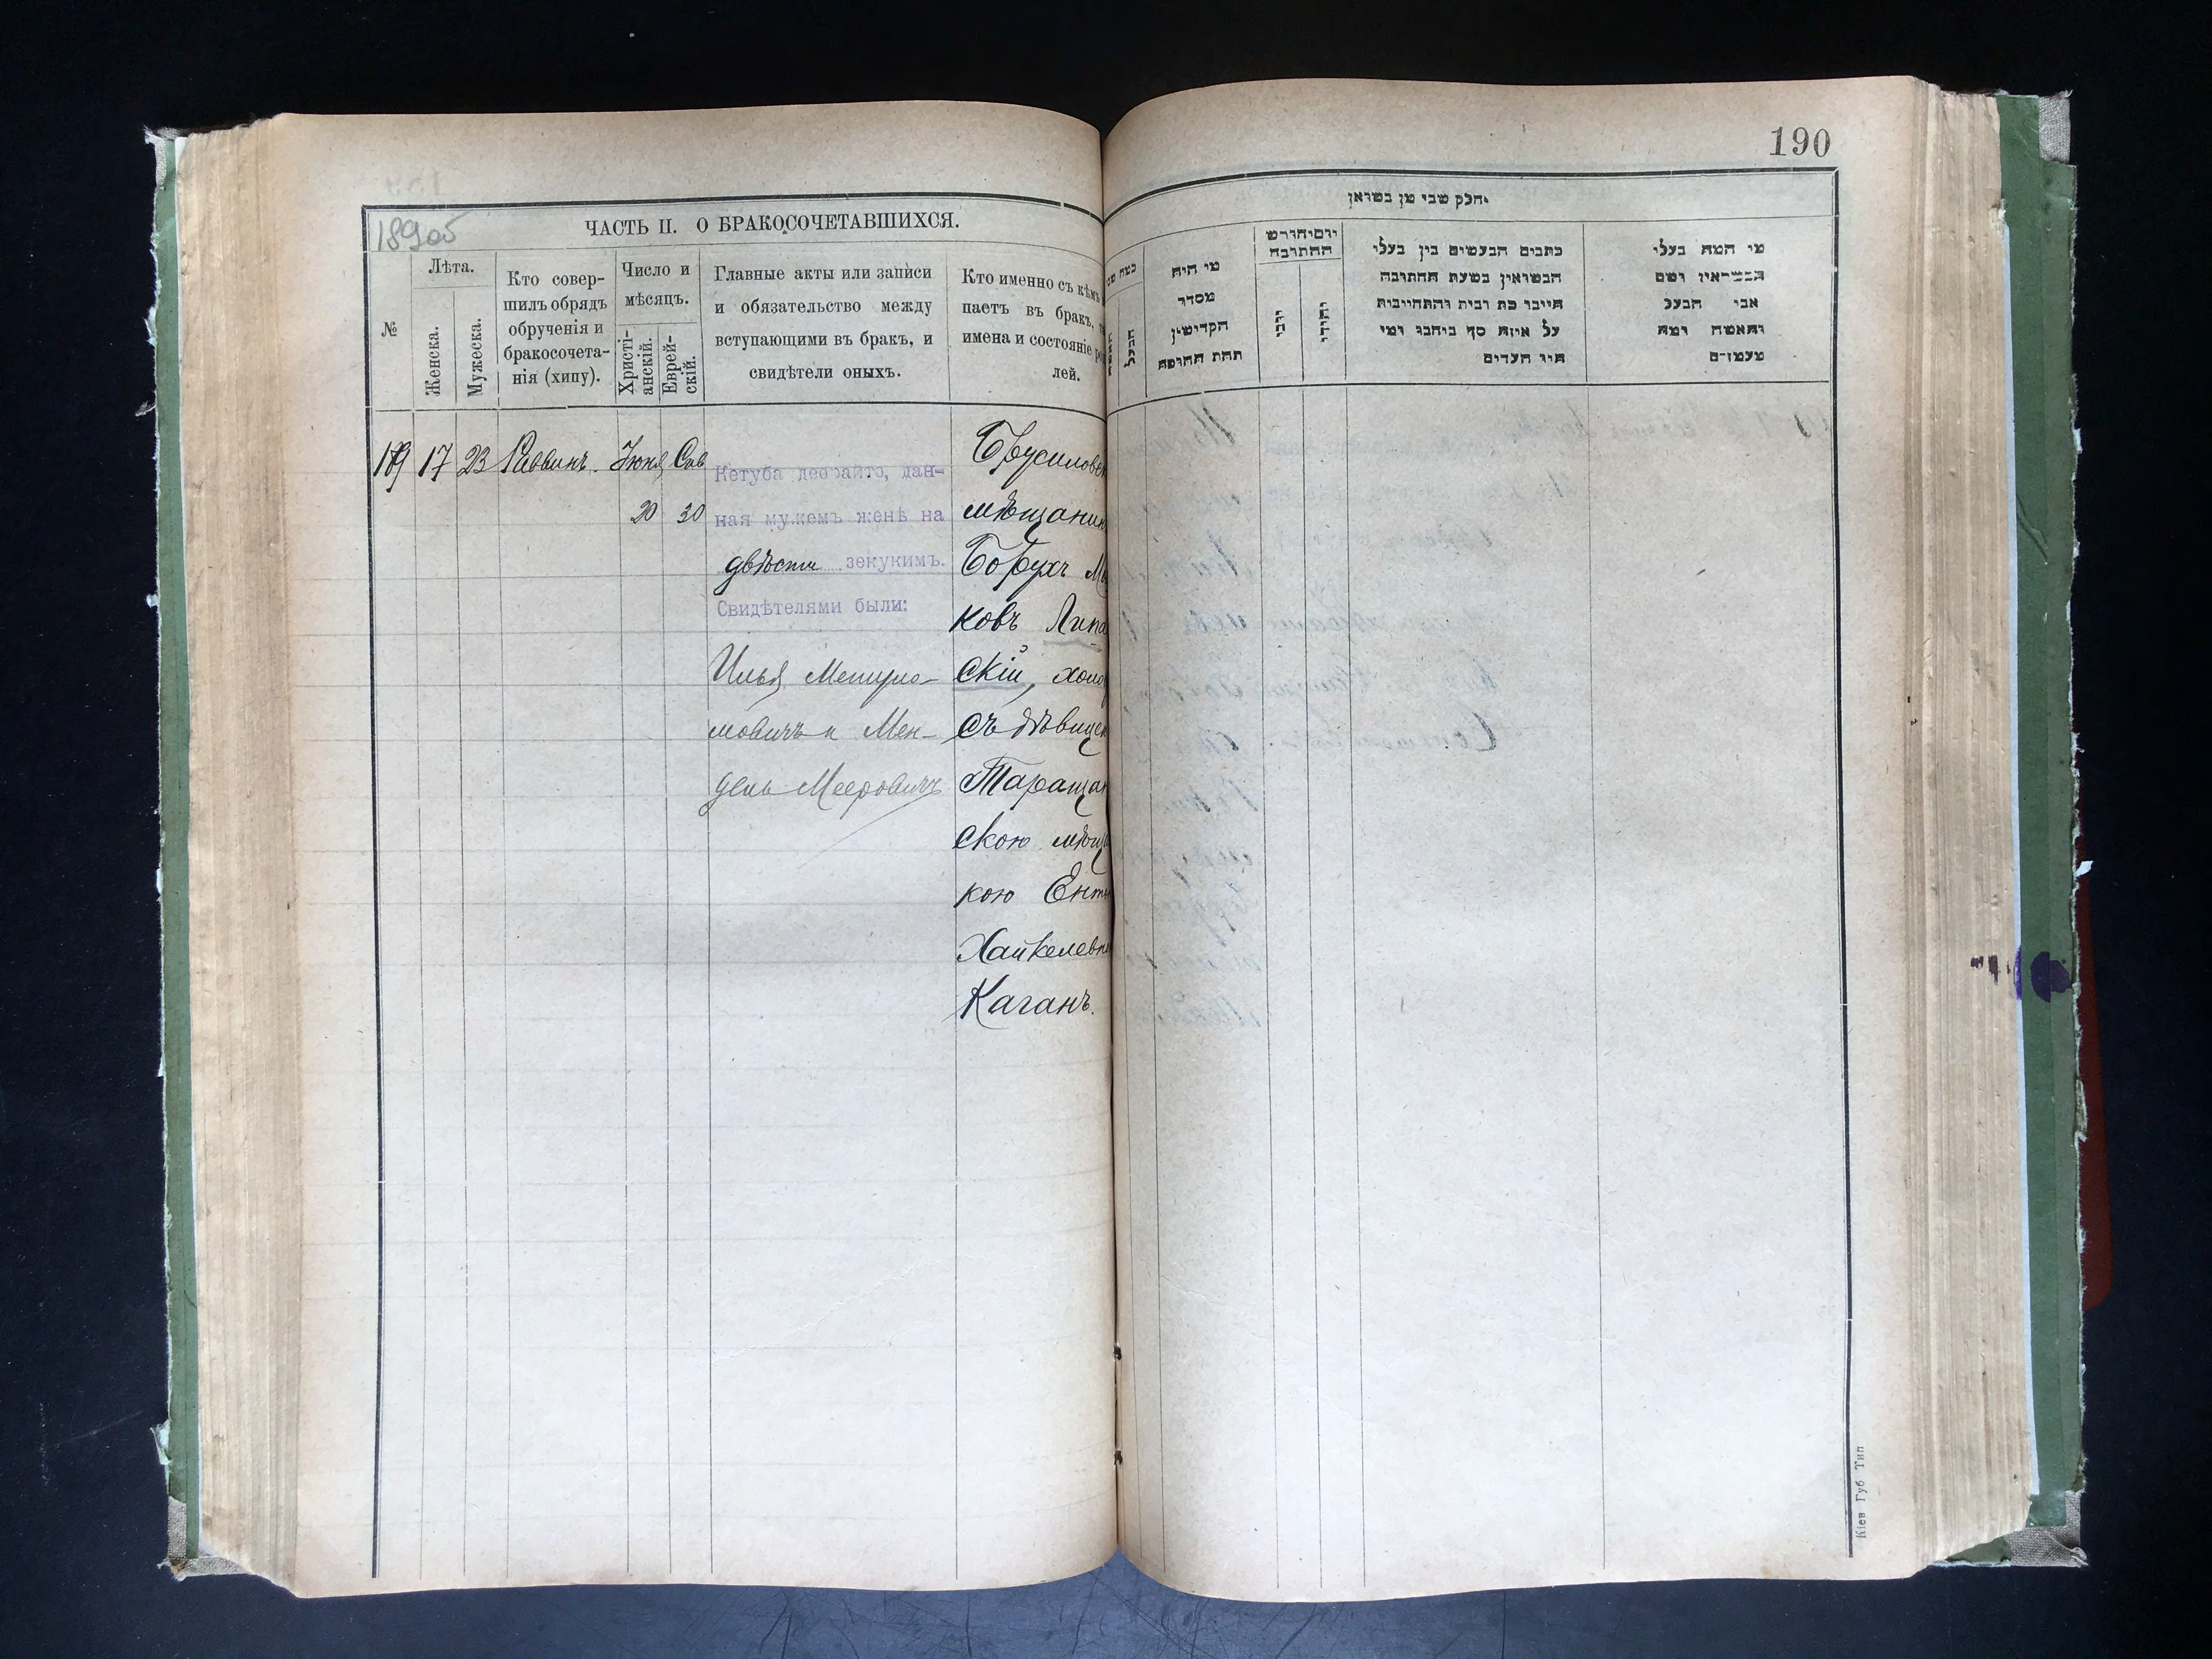 190
189об
ЧАСТЬ II. О БРАКОСОЧЕТАВШИХСЯ.
№
Лѣта.
Женска.
Мужеска.
Кто совер-
шилъ обрядъ
обрученія и
бракосочета-
нія (хипу).
Число и
мѣсяцъ.
Христі-
анскій.
Еврей-
скій.
Главные акты или записи
и обязательство между
вступающими въ бракъ, и
свидѣтели оныхъ.
Кто именно съ кѣмъ
паетъ въ бракъ,
имена и состояніе ро
лей.
189 17 23 Раввинъ. Іюня Сив
20 30
Кетуба деорайто, дан-
ная мужемъ женѣ на
двѣсти зекукимъ.
Свидѣтелями были:
Илья
мовичъ и Мен-
дель Мееровичъ
Брусиловск
мѣщанин
Борухъ
ковъ Липа
скій, холо
съ дѣвицею
Таращан
скою мѣща
кою Ент
Хайкелевн
Каганъ.
חלק שני מן נשואין
כמה שני
האשה
הבעל
מי היה
מסדר
הקדושין
תחת החופה
יום וחודש
החתונה
יוני
יהודי
כתבים הנעשים בין בעלי
הנשואין בשעת החתונה
חייבו כח ובית והתחייבות
על איזה סך ביניהם ומי
היו העדים
מי המה בעלי
הנשואין ושם
אבי הבעל
והאשה ומה
מעמדם
Кіев Губ Тип